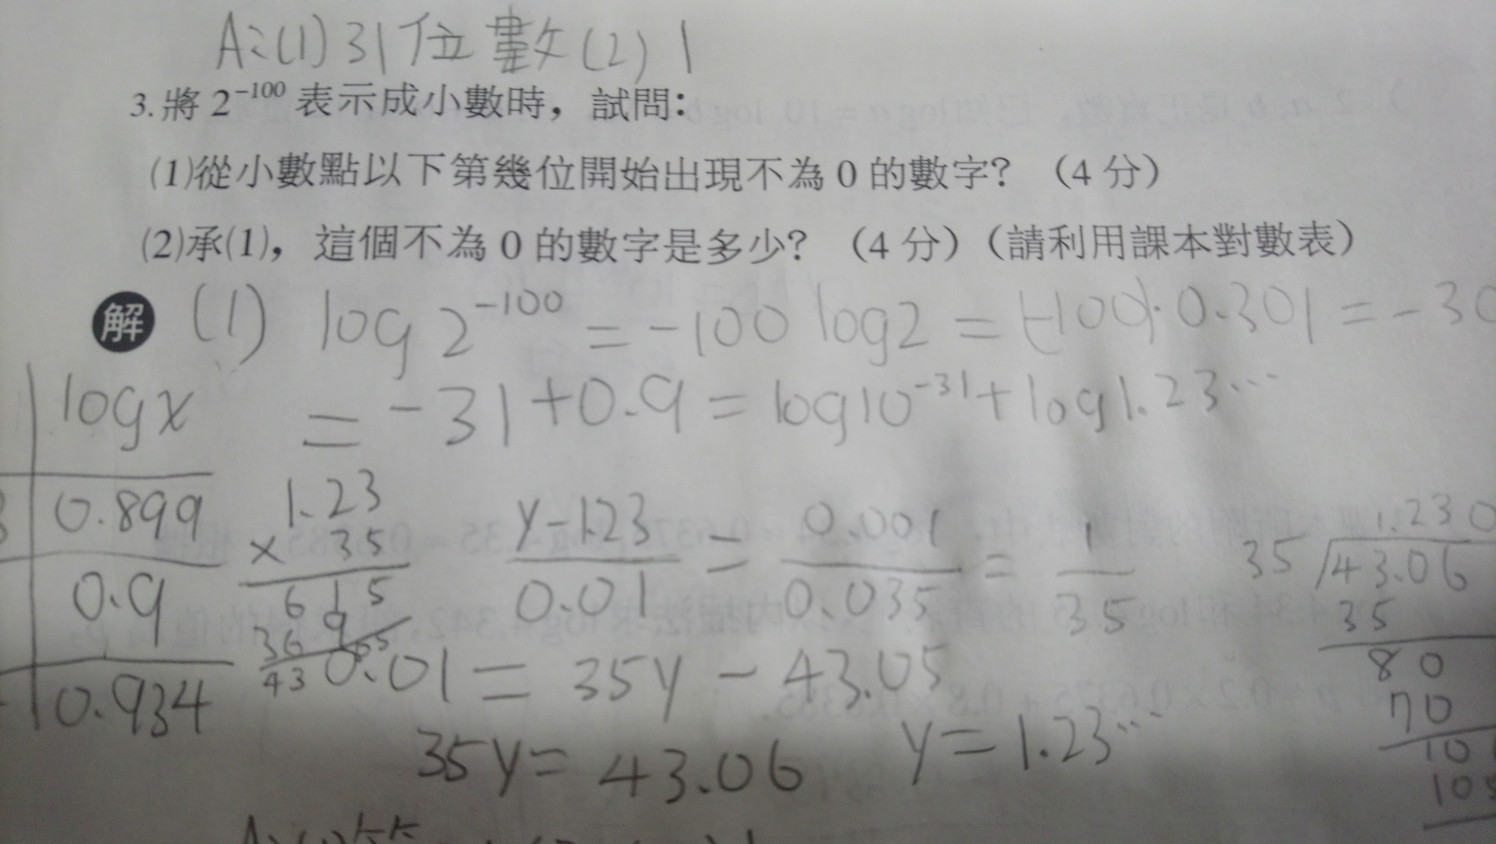 A:(1)31位數(2)1
3.將 2^-100 表示成小數時，試問：
(1)從小數點以下第幾位開始出現不為 0 的數字？（4 分）
(2)承(1)，這個不為 0 的數字是多少？（4 分）（請利用課本對數表）
解 (1) log 2^-100 = -100 log2 = (-100)·0.301 = -30
= -31+0.9 = log10^-31 + log1.23…
logx
0.899
0.9
0.934
1.23
× 35
615
43
y-1.23 / 0.01 = 0.001 / 0.035 = 1 / 35
0.01 = 35y - 43.05
35y = 43.06
y = 1.23…
1.230
35 43.06
35
80
70
10
10